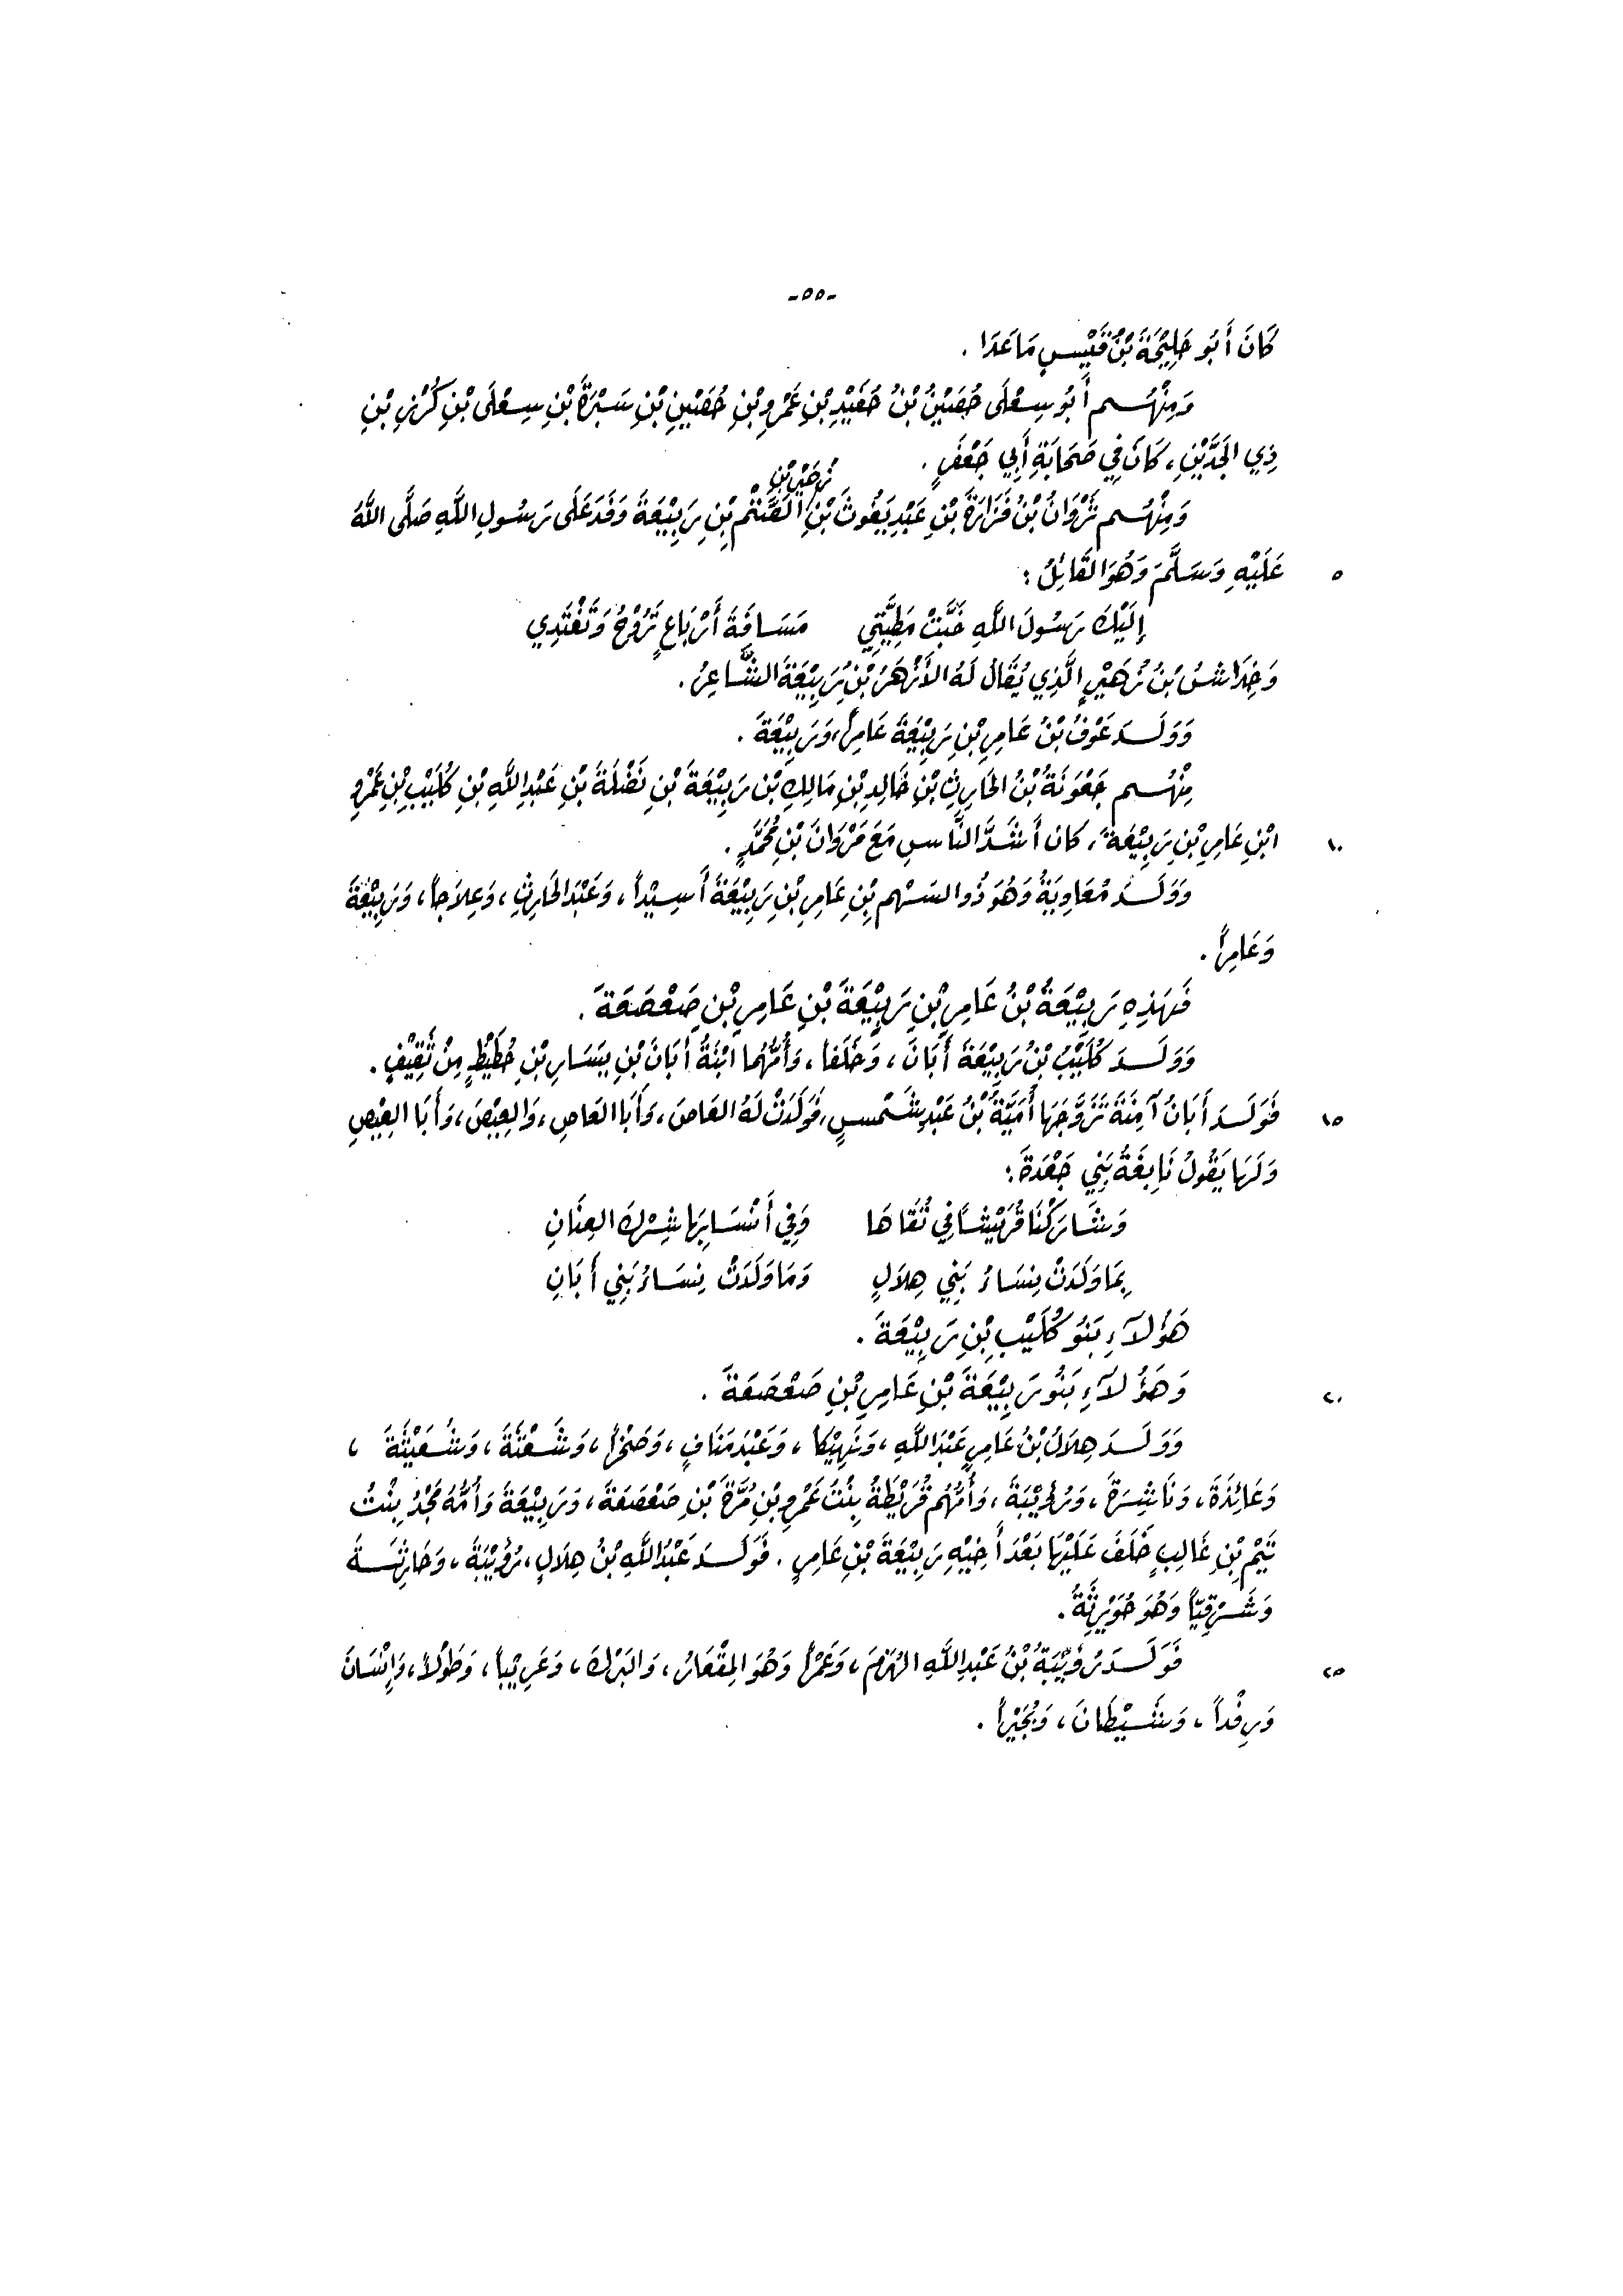 -٥٥-
كَانَ أَبُو خَلِيْجَةَ بْنُ قَيْسٍ مَا عَدَا .
وَمِنْهُم أَبُو سِعْلَى حُصَيْنُ بْنُ حُفَيْدِ بْنِ عَمْرِو بْنِ حُصَيْنِ بْنِ سَبْرَةَ بْنِ سِعْلَى بْنِ كُرْزِ بْنِ
ذِي الجَدَّيْنِ ، كَانَ فِي صَحَابَةِ أَبِي جَعْفَرٍ .
زُحَيْرِ بْنِ
وَمِنْهُم ثَرْوَانُ بْنُ فَزَارَةَ بْنِ عَبْدِ يَغُوثَ بْنِ الصَّتْمِ بْنِ رَبِيْعَةَ وَفَدَ عَلَى رَسُولِ اللَّهِ صَلَّى اللهُ
٥ عَلَيْهِ وَسَلَّمَ وَهُوَ القَائِلُ :
إِلَيْكَ رَسُولَ اللَّهِ خَبَّتْ مَطِيَّتِي مَسَافَةَ أَرْبَاعٍ تَرُوْحُ وَتَغْتَدِي
وَخِدَاشُ بْنُ زُهَيْرٍ الَّذِي يُقَالُ لَهُ الأَزْهَرُ بْنُ رَبِيْعَةَ الشَّاعِرُ .
وَوَلَدَ عَوْفُ بْنُ عَامِرِ بْنِ رَبِيْعَةَ عَامِراً ، وَرَبِيْعَةَ .
مِنْهُم جَعْوَنَةُ بْنُ الحَارِثِ بْنِ خَالِدِ بْنِ مَالِكِ بْنِ رَبِيْعَةَ بْنِ نَضْلَةَ بْنِ عَبْدِ اللهِ بْنِ كُلَيْبِ بْنِ عَمْرِو
١٠ ابْنِ عَامِرِ بْنِ رَبِيْعَةَ ، كَانَ أَشَدَّ النَّاسِ مَعَ مَرْوَانَ بْنِ مُحَمَّدٍ .
وَوَلَدَ مُعَاوِيَةُ وَهُوَ ذُو السَهْمِ بْنِ عَامِرِ بْنِ رَبِيْعَةَ أَسِيْداً ، وَعَبْدَ الحَارِثِ ، وَعِلَاجاً ، وَرَبِيْعَةَ
وَعَامِراً .
فَهَذِهِ رَبِيْعَةُ بْنُ عَامِرِ بْنِ رَبِيْعَةَ بْنِ عَامِرِ بْنِ صَعْصَعَةَ .
وَوَلَدَ كُلَيْبُ بْنُ رَبِيْعَةَ أَبَانَ ، وَخَلَفاً ، وَأُمُّهُمَا ابْنَةُ أَبَانَ بْنِ يَسَارِ بْنِ حُطَيْطٍ مِنْ ثَقِيْفٍ .
١٥ فَوَلَدَ أَبَانُ آمِنَةَ تَزَوَّجَهَا أُمَيَّةُ بْنُ عَبْدِ شَمْسٍ ، فَوَلَدَتْ لَهُ العَاصَ ، وَأَبَا العَاصِ ، وَالعِيْصَ ، وَأَبَا العِيْصِ
وَلَهَا يَقُولُ نَابِغَةُ بَنِي جَعْدَةَ :
وَشَارَكْنَا قُرَيْشاً فِي تُقَاهَا وَفِي أَنْسَابِهَا شِرْكَ العِنَانِ
بِمَا وَلَدَتْ نِسَاءُ بَنِي هِلَالٍ وَمَا وَلَدَتْ نِسَاءُ بَنِي أَبَانِ
هَؤُلَاءِ بَنُو كُلَيْبِ بْنِ رَبِيْعَةَ .
٢٠ وَهَؤُلَاءِ بَنُو رَبِيْعَةَ بْنِ عَامِرِ بْنِ صَعْصَعَةَ .
وَوَلَدَ هِلَالُ بْنُ عَامِرٍ عَبْدَ اللَّهِ ، وَنَهِيْكاً ، وَعَبْدَ مَنَافٍ ، وَصَخْراً ، وَشَعْثَةَ ، وَشُعَيْثَةَ ،
وَعَائِذَةَ ، وَنَاشِرَةَ ، وَرُؤَيْبَةَ ، وَأُمُّهُم قُرَيْظَةُ بِنْتُ عَمْرِو بْنِ مُرَّةَ بْنِ صَعْصَعَةَ ، وَرَبِيْعَةَ وَأُمُّهُ مَجْدُ بِنْتُ
تَيْمِ بْنِ غَالِبٍ خَلَفَ عَلَيْهَا بَعْدَ أَخِيْهِ رَبِيْعَةَ بْنِ عَامِرٍ . فَوَلَدَ عَبْدُ اللَّهِ بْنُ هِلَالٍ ، رُؤَيْبَةَ ، وَحَارِثَةَ
وَشَرْقِيّاً وَهُوَ حُوَيْرِثَةُ .
٢٥ فَوَلَدَ رُؤَيْبَةُ بْنُ عَبْدِ اللَّهِ الهُزَمَ ، وَعَمْراً وَهُوَ المِقْعَارُ ، وَالبَرْكَ ، وَعَرِيْباً ، وَطَوْلاً ، وَإِنْسَانَ
وَرِفْداً ، وَشَيْطَانَ ، وَبُجَيْراً .